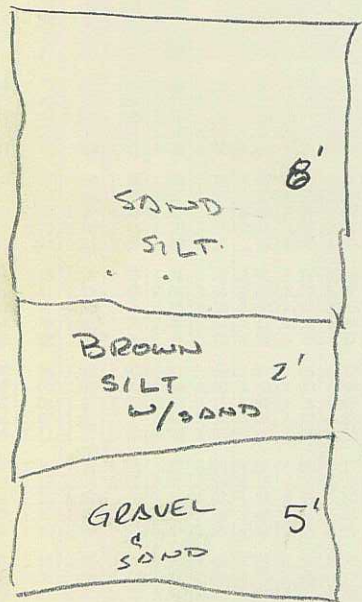 8'
SAND
SILT.
BROWN
SILT 2'
W/SAND
GRAVEL
& 5'
SAND